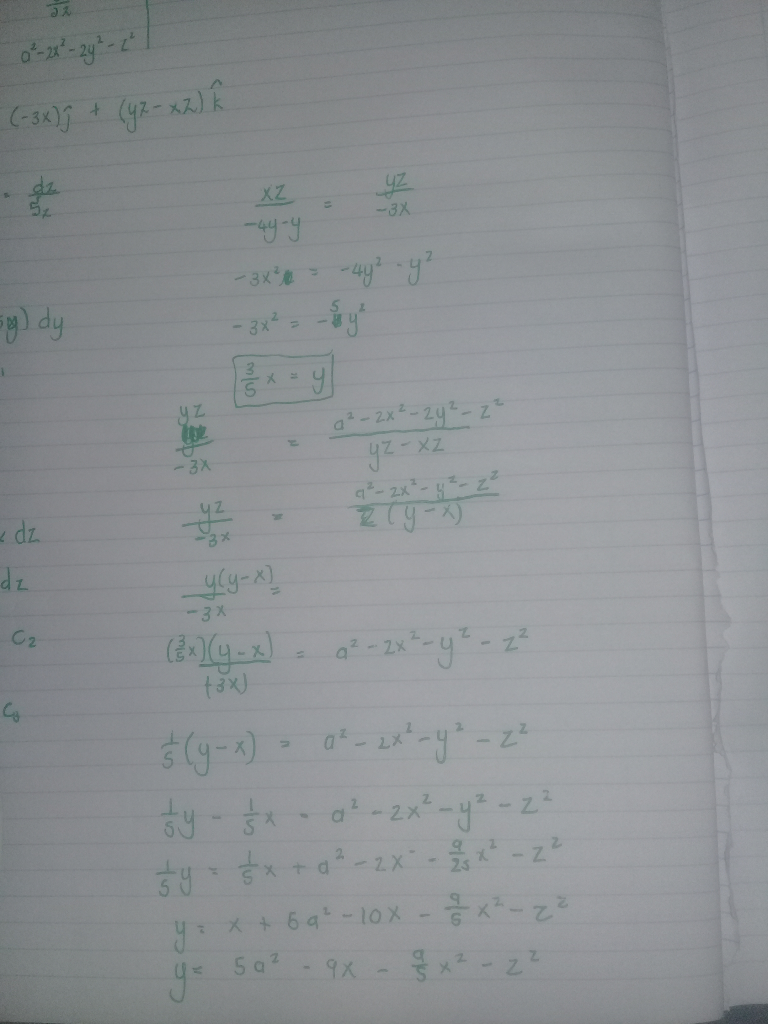 2x
a² - 2x² - 2y² - z²
(-3x)ĵ + (yz - xz) k̂
= dz/5z
xz/(-4y-y) = yz/-3x
-3x² = -4y² - y²
) dy
-3x² = -5y²
3/5 x = y
yz/-3x = (a² - 2x² - 2y² - z²)/(yz - xz)
yz/-3x = (a² - 2x² - y² - z²)/(z(y - x))
dz
y(y-x)/-3x =
dz
c₂
(3/5x)(y-x)/(-3x) = a² - 2x² - y² - z²
1/5(y-x) = a² - 2x² - y² - z²
1/5y - 1/5x = a² - 2x² - y² - z²
1/5y = 1/5x + a² - 2x - 9/25x² - z²
y = x + 5a² - 10x - 9/5x² - z²
y = 5a² - 9x - 9/5x² - z²